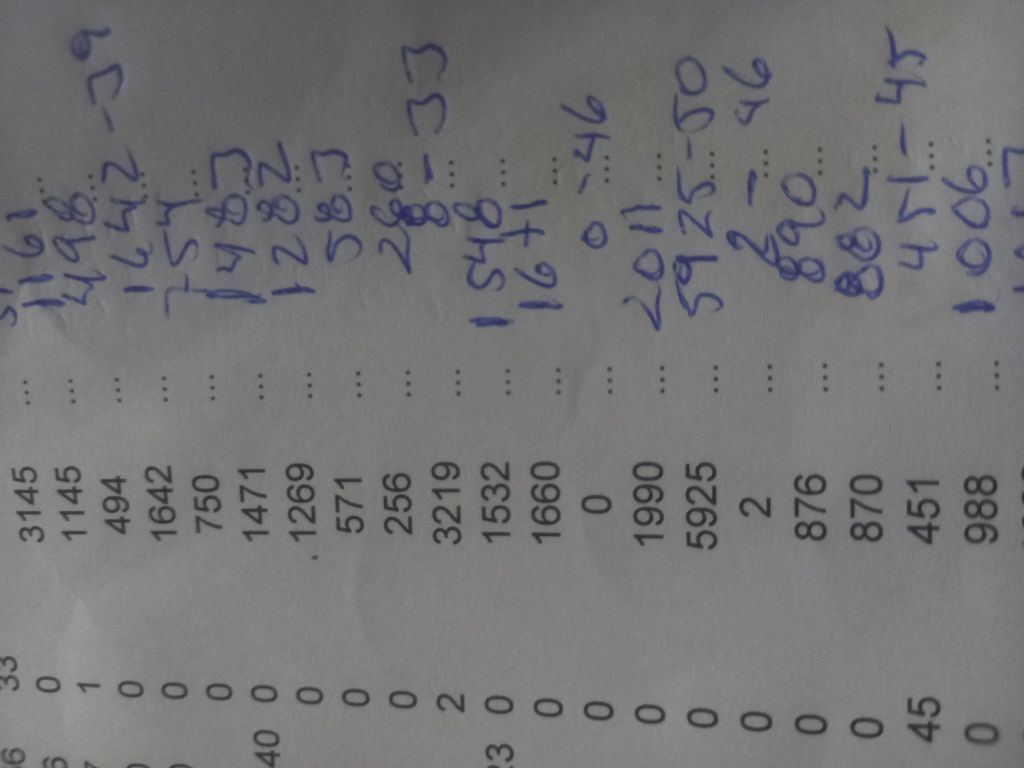 33
0 3145 ... 1161 ...
1 1145 ... 498 ...
0 494 ... 1642 - 39 ...
0 1642 ... 754 ...
0 750 ... 1483 ...
40 0 1471 ... 1282 ...
0 1269 ... 583 ...
0 571 ... 260 ...
0 256 ... 8 - 33 ...
2 3219 ... 1548
0 1532 ... 1671 ...
0 1660 ... 0 - 46 ...
0 0 ... 2011 ...
0 1990 ... 5925 - 50 ...
0 5925 ... 2 - 46 ...
0 2 ... 890 ...
0 876 ... 882 ...
0 870 ... 451 - 45 ...
45 451 ... 1006 ...
0 988 ...